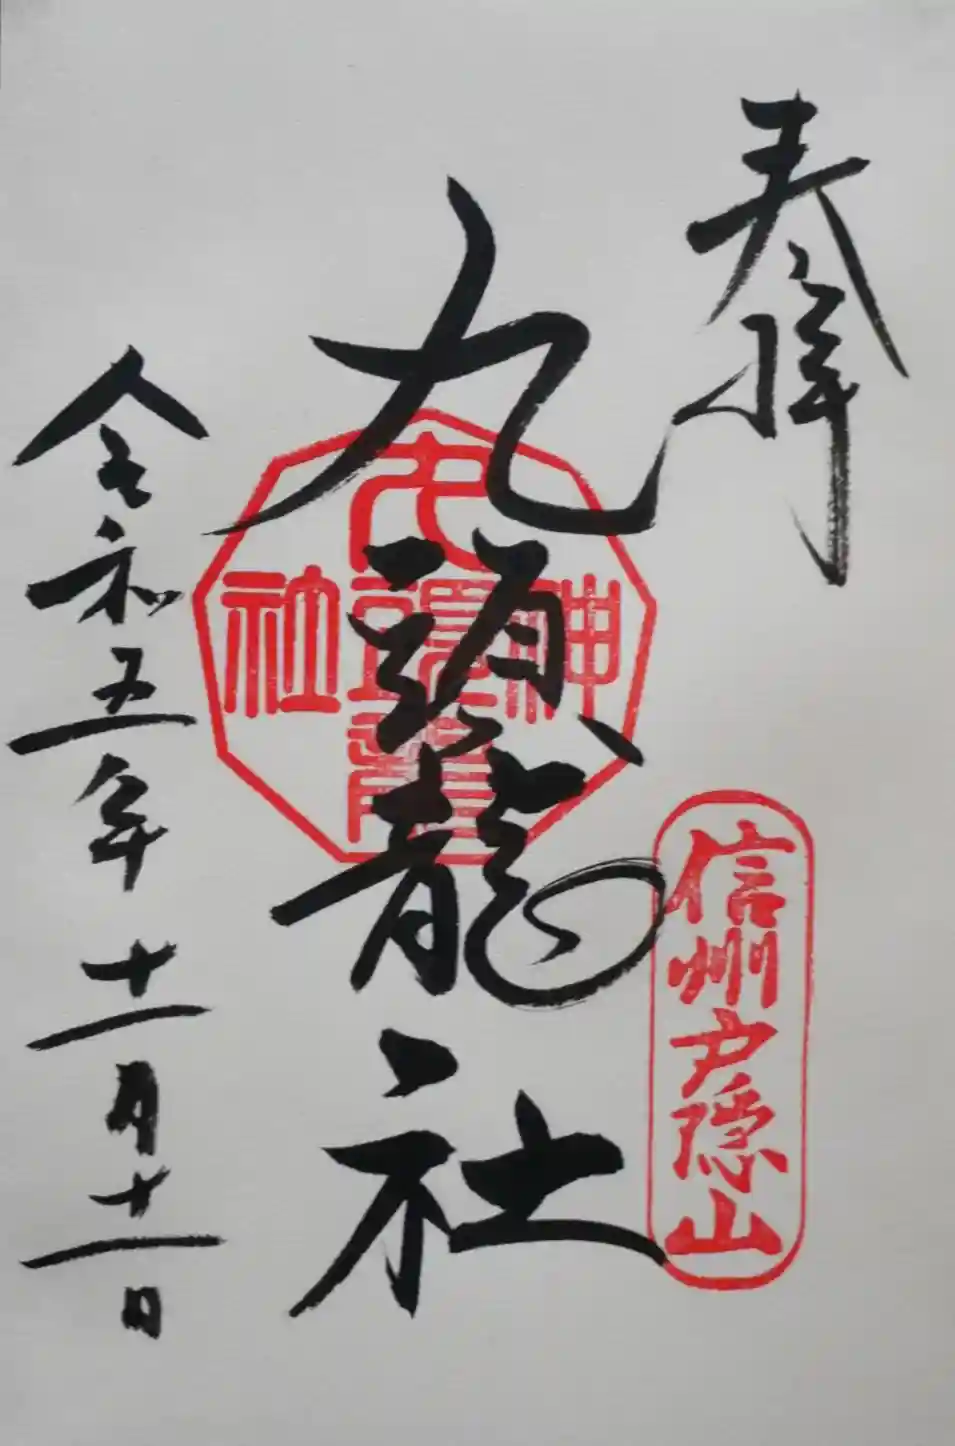 奉拝
信州戸隠山
九頭龍社
神
九頭龍
社
令和五年十一月十一日